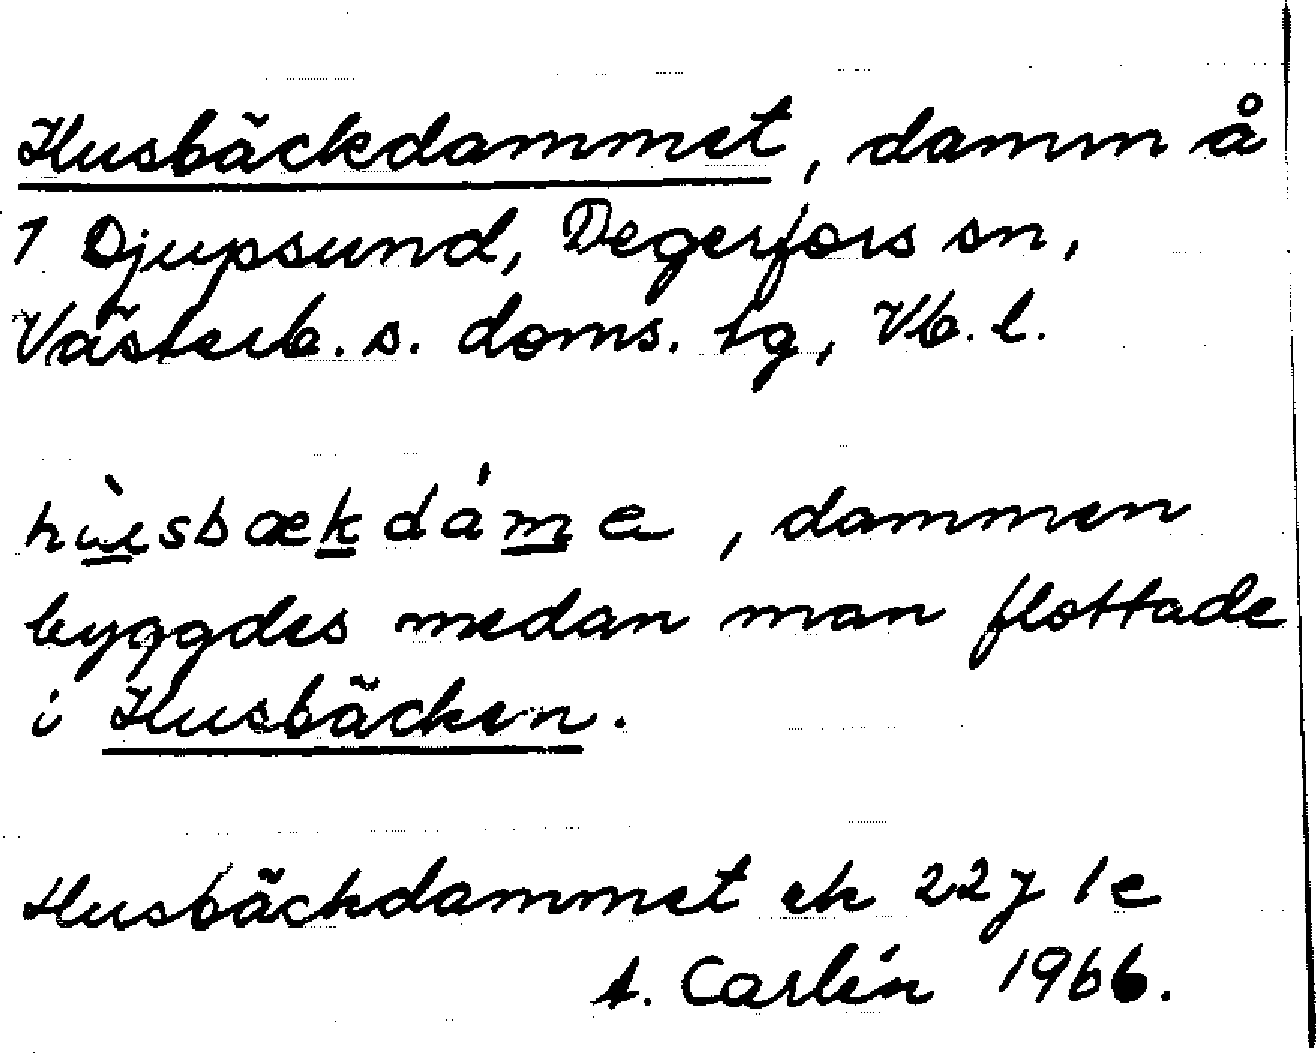 Husbäckdammet, damm å
1 Djupsund, Degerfors sn,
Västerb. s. doms. tg, Vb. l.
hùsbækdáme, dammen
byggdes medan man flottade
i Husbäcken.
Husbäckdammet ek 22J 1e
A. Carlén 1966.